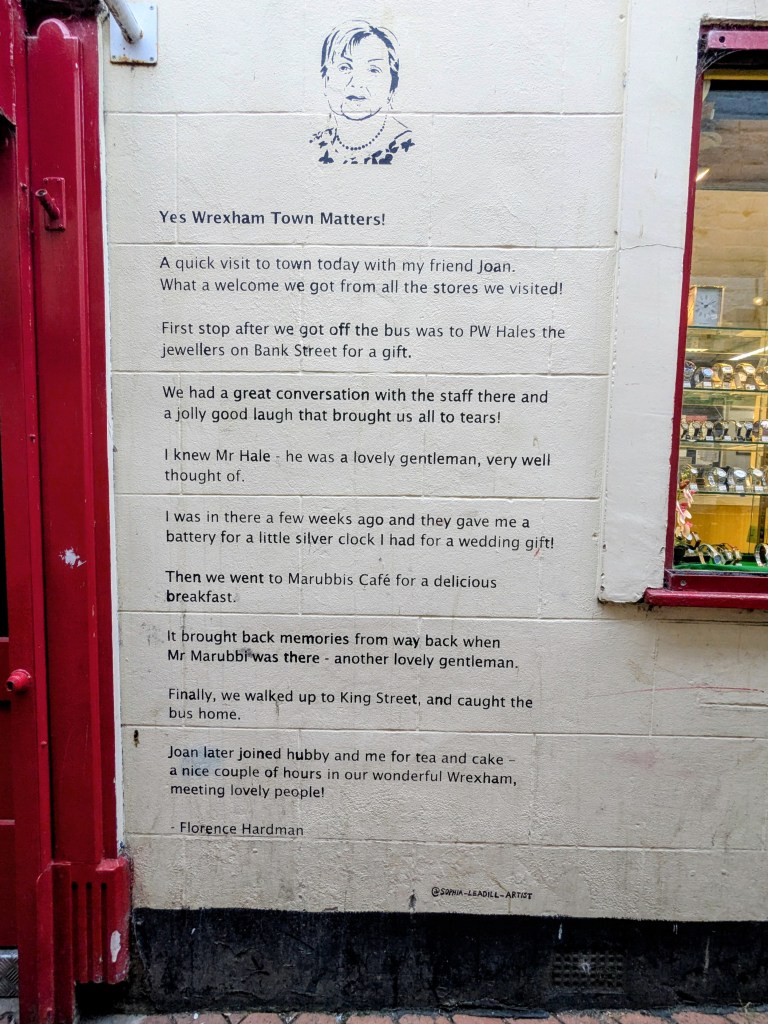 Yes Wrexham Town Matters!
A quick visit to town today with my friend Joan.
What a welcome we got from all the stores we visited!
First stop after we got off the bus was to PW Hales the
jewellers on Bank Street for a gift.
We had a great conversation with the staff there and
a jolly good laugh that brought us all to tears!
I knew Mr Hale - he was a lovely gentleman, very well
thought of.
I was in there a few weeks ago and they gave me a
battery for a little silver clock I had for a wedding gift!
Then we went to Marubbis Café for a delicious
breakfast.
It brought back memories from way back when
Mr Marubbi was there - another lovely gentleman.
Finally, we walked up to King Street, and caught the
bus home.
Joan later joined hubby and me for tea and cake –
a nice couple of hours in our wonderful Wrexham,
meeting lovely people!
- Florence Hardman
@SOPHIA-LEADILL-ARTIST